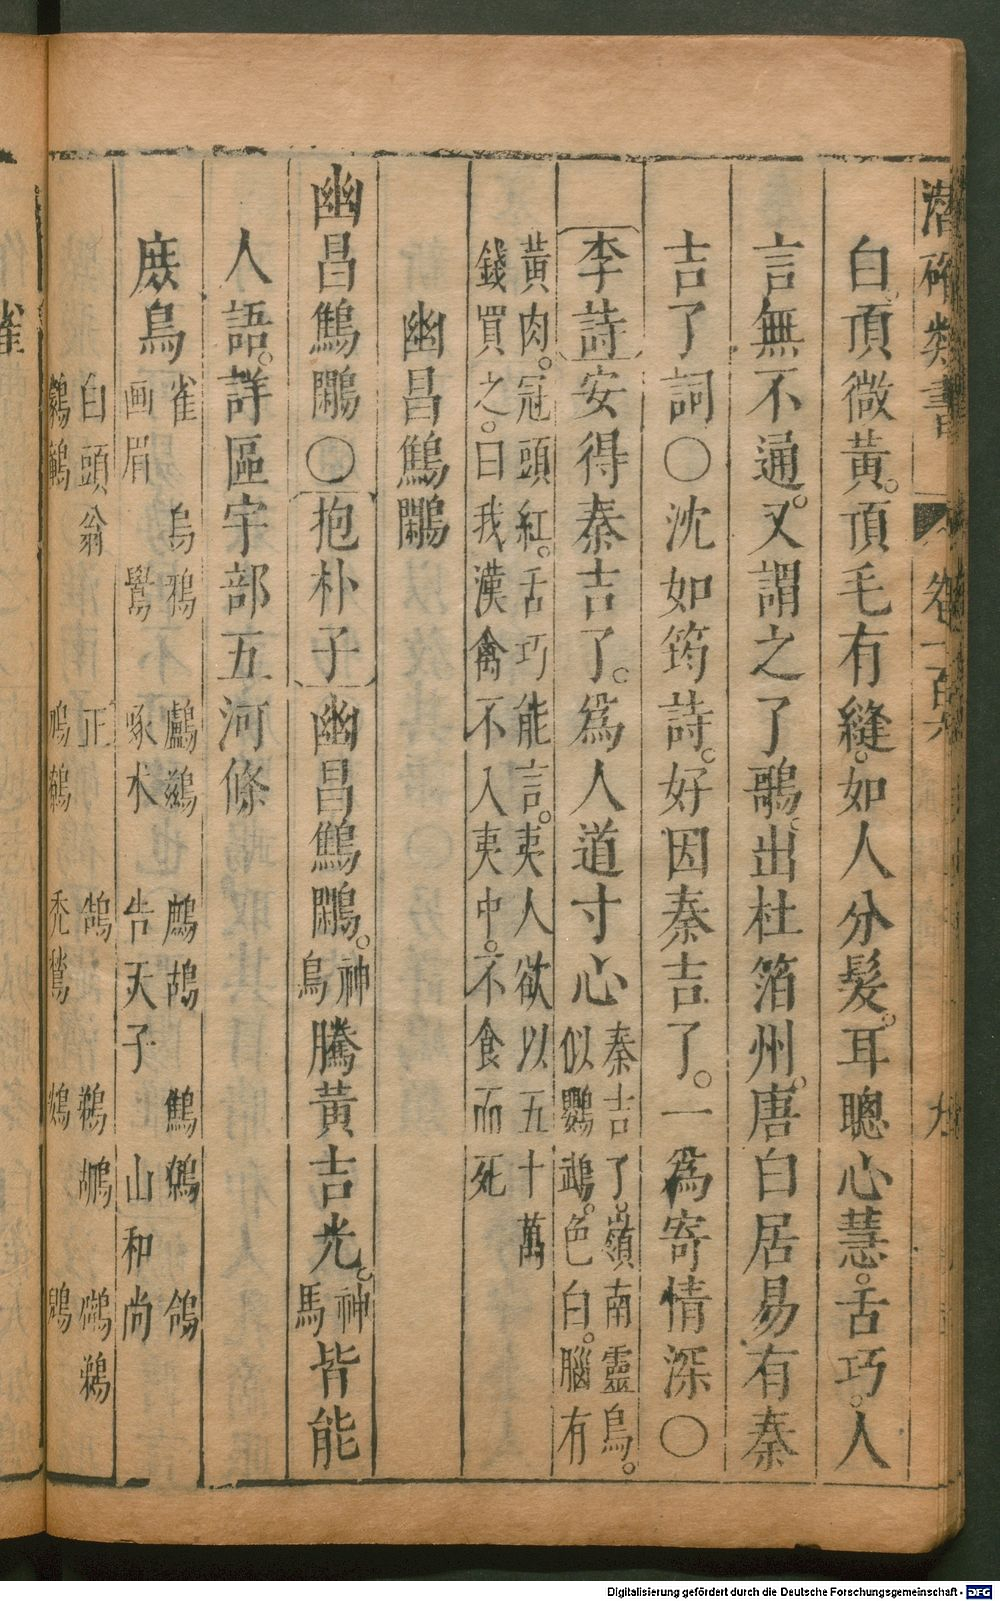 潛確類書 卷一百 九
白頂微黃。頂毛有縫。如人分髮。耳聰心慧。舌巧。人
言無不通。又謂之了鴞。出杜箔州。唐白居易有秦
吉了詞〇沈如筠詩。好因秦吉了。一爲寄情深〇
李詩安得秦吉了。爲人道寸心
秦吉了。嶺南靈鳥。
似鸚鵡。色白。腦有
黃肉。冠頭紅。舌巧能言。夷人欲以五十萬
錢買之。曰我漢禽不入夷中。不食而死
幽昌鷦鷴
幽昌鷦鷴〇抱朴子幽昌鷦鷴。
神
鳥
騰黃吉光。
神
馬
皆能
人語。詳區宇部五河條
庶鳥
雀 烏鴉 鸕鷀 鷓鴣 鷦鷯 鴿
画眉 鸒 啄木 告天子 山和尚
白頭翁 鵠 鵜鶘
禿鶖
Digitalisierung gefördert durch die Deutsche Forschungsgemeinschaft - DFG